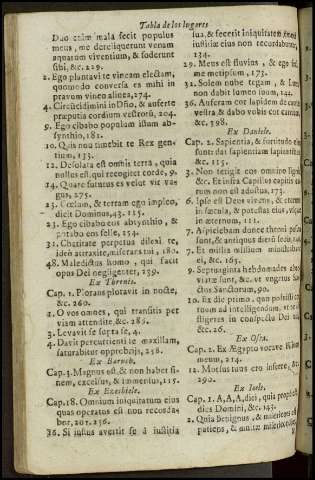 Tabla de los lugares
Duo enim mala fecit populus
meus, me dereliquerunt venam
aquarum viventium, & foderunt
sibi, &c. 229.
2. Ego plantavi te vineam electam,
quomodo conversa es mihi in
pravum vinea aliena, 274.
4. Circūcidimini in Dño, & auferte
præputia cordium vestrorū, 204.
9. Ego cibabo populum istum ab-
synthio, 182.
10. Quis non timebit te Rex gen-
tium, 133.
12. Desolata est omnis terra, quia
nullus est qui recogitet corde, 9.
14. Quare futurus es velut vir va-
gus, 275.
23. Cœlum, & terram ego impleo,
dicit Dominus, 43. 115.
23. Ego cibabo eos absynthio, &
potabo eos felle, 154.
31. Charitate perpetua dilexi te,
ideò attraxi te, miserans tui, 180.
48. Maledictus homo, qui facit
opus Dei negligenter, 239.
Ex Torenis.
Cap. 1. Plorans ploravit in nocte,
&c. 260.
1. O vos omnes, qui transitis per
viam attendite, &c. 285.
3. Levavit se supra se, 4.
4. Davit percutienti te maxillam,
saturabitur opprobrijs, 258.
Ex Baruch.
Cap. 3. Magnus est, & non habet fi-
nem, excelsus, & immensus, 115.
Ex Ezechiele.
Cap. 18. Omnium iniquitatum eius
quas operatus est non recorda-
bor, 201. 236.
36. Si iustus avertit se à iustitia
sua, & fecerit iniquitatem omnes
iustitiæ eius non recordabuntur,
134.
29. Meus est fluvius, & ego
me metipsum, 173.
32. Solem nube tegam, & Luna
non dabit lumen suum, 144.
36. Auferam cor lapideum de carne
vestra & dabo vobis cor carneum,
&c. 198.
Ex Daniele.
Cap. 2. Sapientia, & fortitudo eius
sunt: dat sapientiam sapientibus
&c. 115.
3. Non tetigit eos omnino ignis
&c. Et infra Capillus capitis eo-
rum non est adustus, 173.
6. Ipse est Deus vivens, & æternus
in sæcula, & potestas eius, usque
in æternum, 111.
7. Aspiciebam donec throni positi
sunt, & antiquus dierū
7. Et millia millium ministrabant
ei, &c. 163.
9. Septuaginta hebdomades abre-
viatæ sunt, &c. ut ungatur San-
ctus Sanctorum, 290.
10. Ex die primo, quo posuisti cor
tuum ad intelligendum, ut te af-
fligeres in conspectu Dei tui
&c. 26.
Ex Osea.
Cap. 2. Ex Ægypto vocavi filium
meum, 214.
12. Morsus tuus ero inferne, &c.
290.
Ex Ioele.
Cap. 1. A, A, A, dici, quia propè est
dies Domini, &c. 143.
2. Quia benignus, & misericors est
patiens, & multæ misericordiæ,